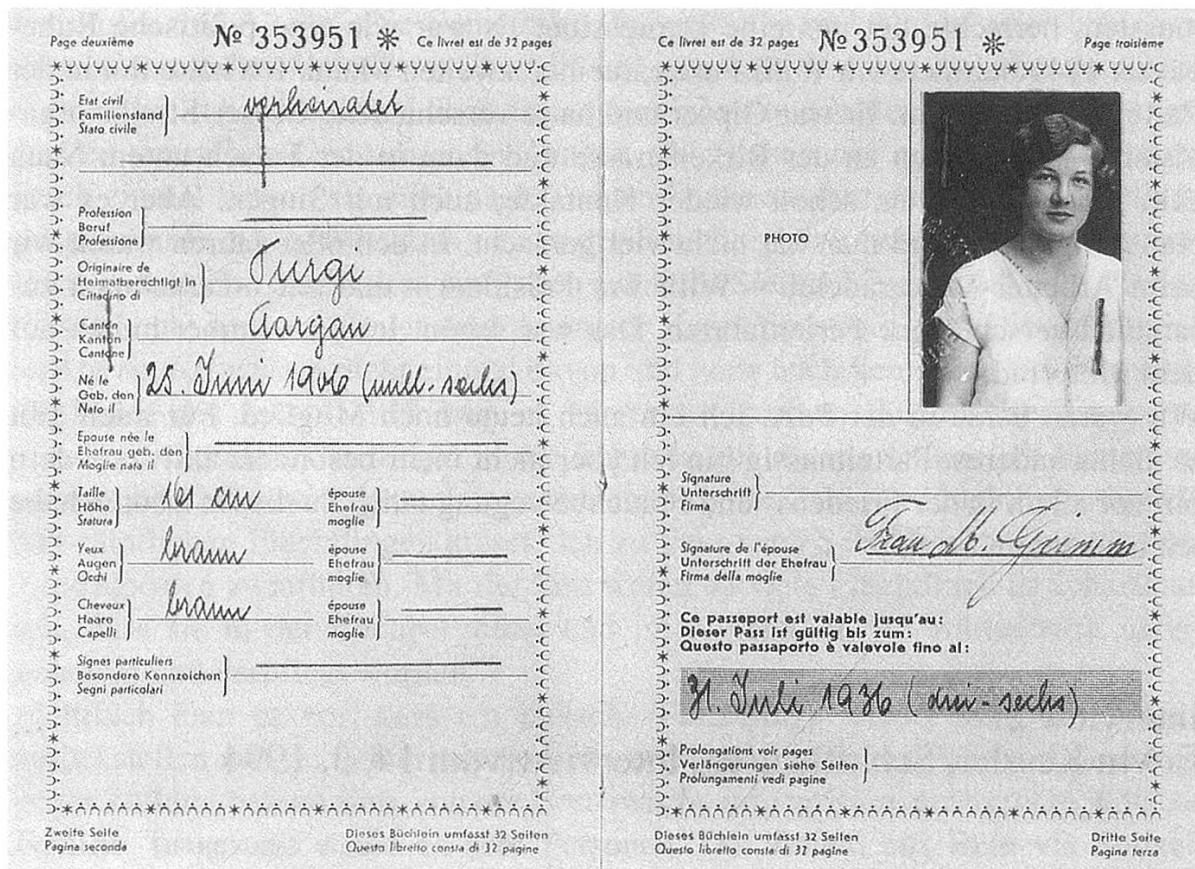 Page deuxième № 353951 * Ce livret est de 32 pages
Etat civil
Familienstand
Stato civile
verheiratet
Profession
Beruf
Professione
Originaire de
Heimatberechtigt in
Cittadino di
Turgi
Canton
Kanton
Cantone
Aargau
Né le
Geb. den
Nato il
25. Juni 1906 (null-sechs)
Epouse née le
Ehefrau geb. den
Moglie nata il
Taille
Höhe
Statura
161 cm
épouse
Ehefrau
moglie
Yeux
Augen
Occhi
braun
épouse
Ehefrau
moglie
Cheveux
Haare
Capelli
braun
épouse
Ehefrau
moglie
Signes particuliers
Besondere Kennzeichen
Segni particolari
Zweite Seite
Pagina seconda
Dieses Büchlein umfasst 32 Seiten
Questo libretto consta di 32 pagine
Ce livret est de 32 pages № 353951 * Page troisième
PHOTO
Signature
Unterschrift
Firma
Signature de l'épouse
Unterschrift der Ehefrau
Firma della moglie
Frau M. Grimm
Ce passeport est valable jusqu'au:
Dieser Pass ist gültig bis zum:
Questo passaporto è valevole fino al:
31. Juli 1936 (drei-sechs)
Prolongations voir pages
Verlängerungen siehe Seiten
Prolungamenti vedi pagine
Dieses Büchlein umfasst 32 Seiten
Questo libretto consta di 32 pagine
Dritte Seite
Pagina terza